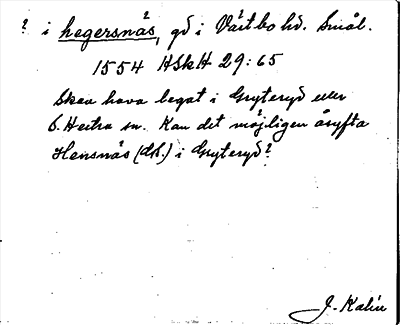 ? i hegersnås, gd i Västbo hd. Smål.
1554 HSkH 29:65
Skea hava legat i Gryteryd eller
S. Hestra sn. Kan det möjligen åsyfta
Hensnäs (ds.) i Gryteryd?
J. Kalén